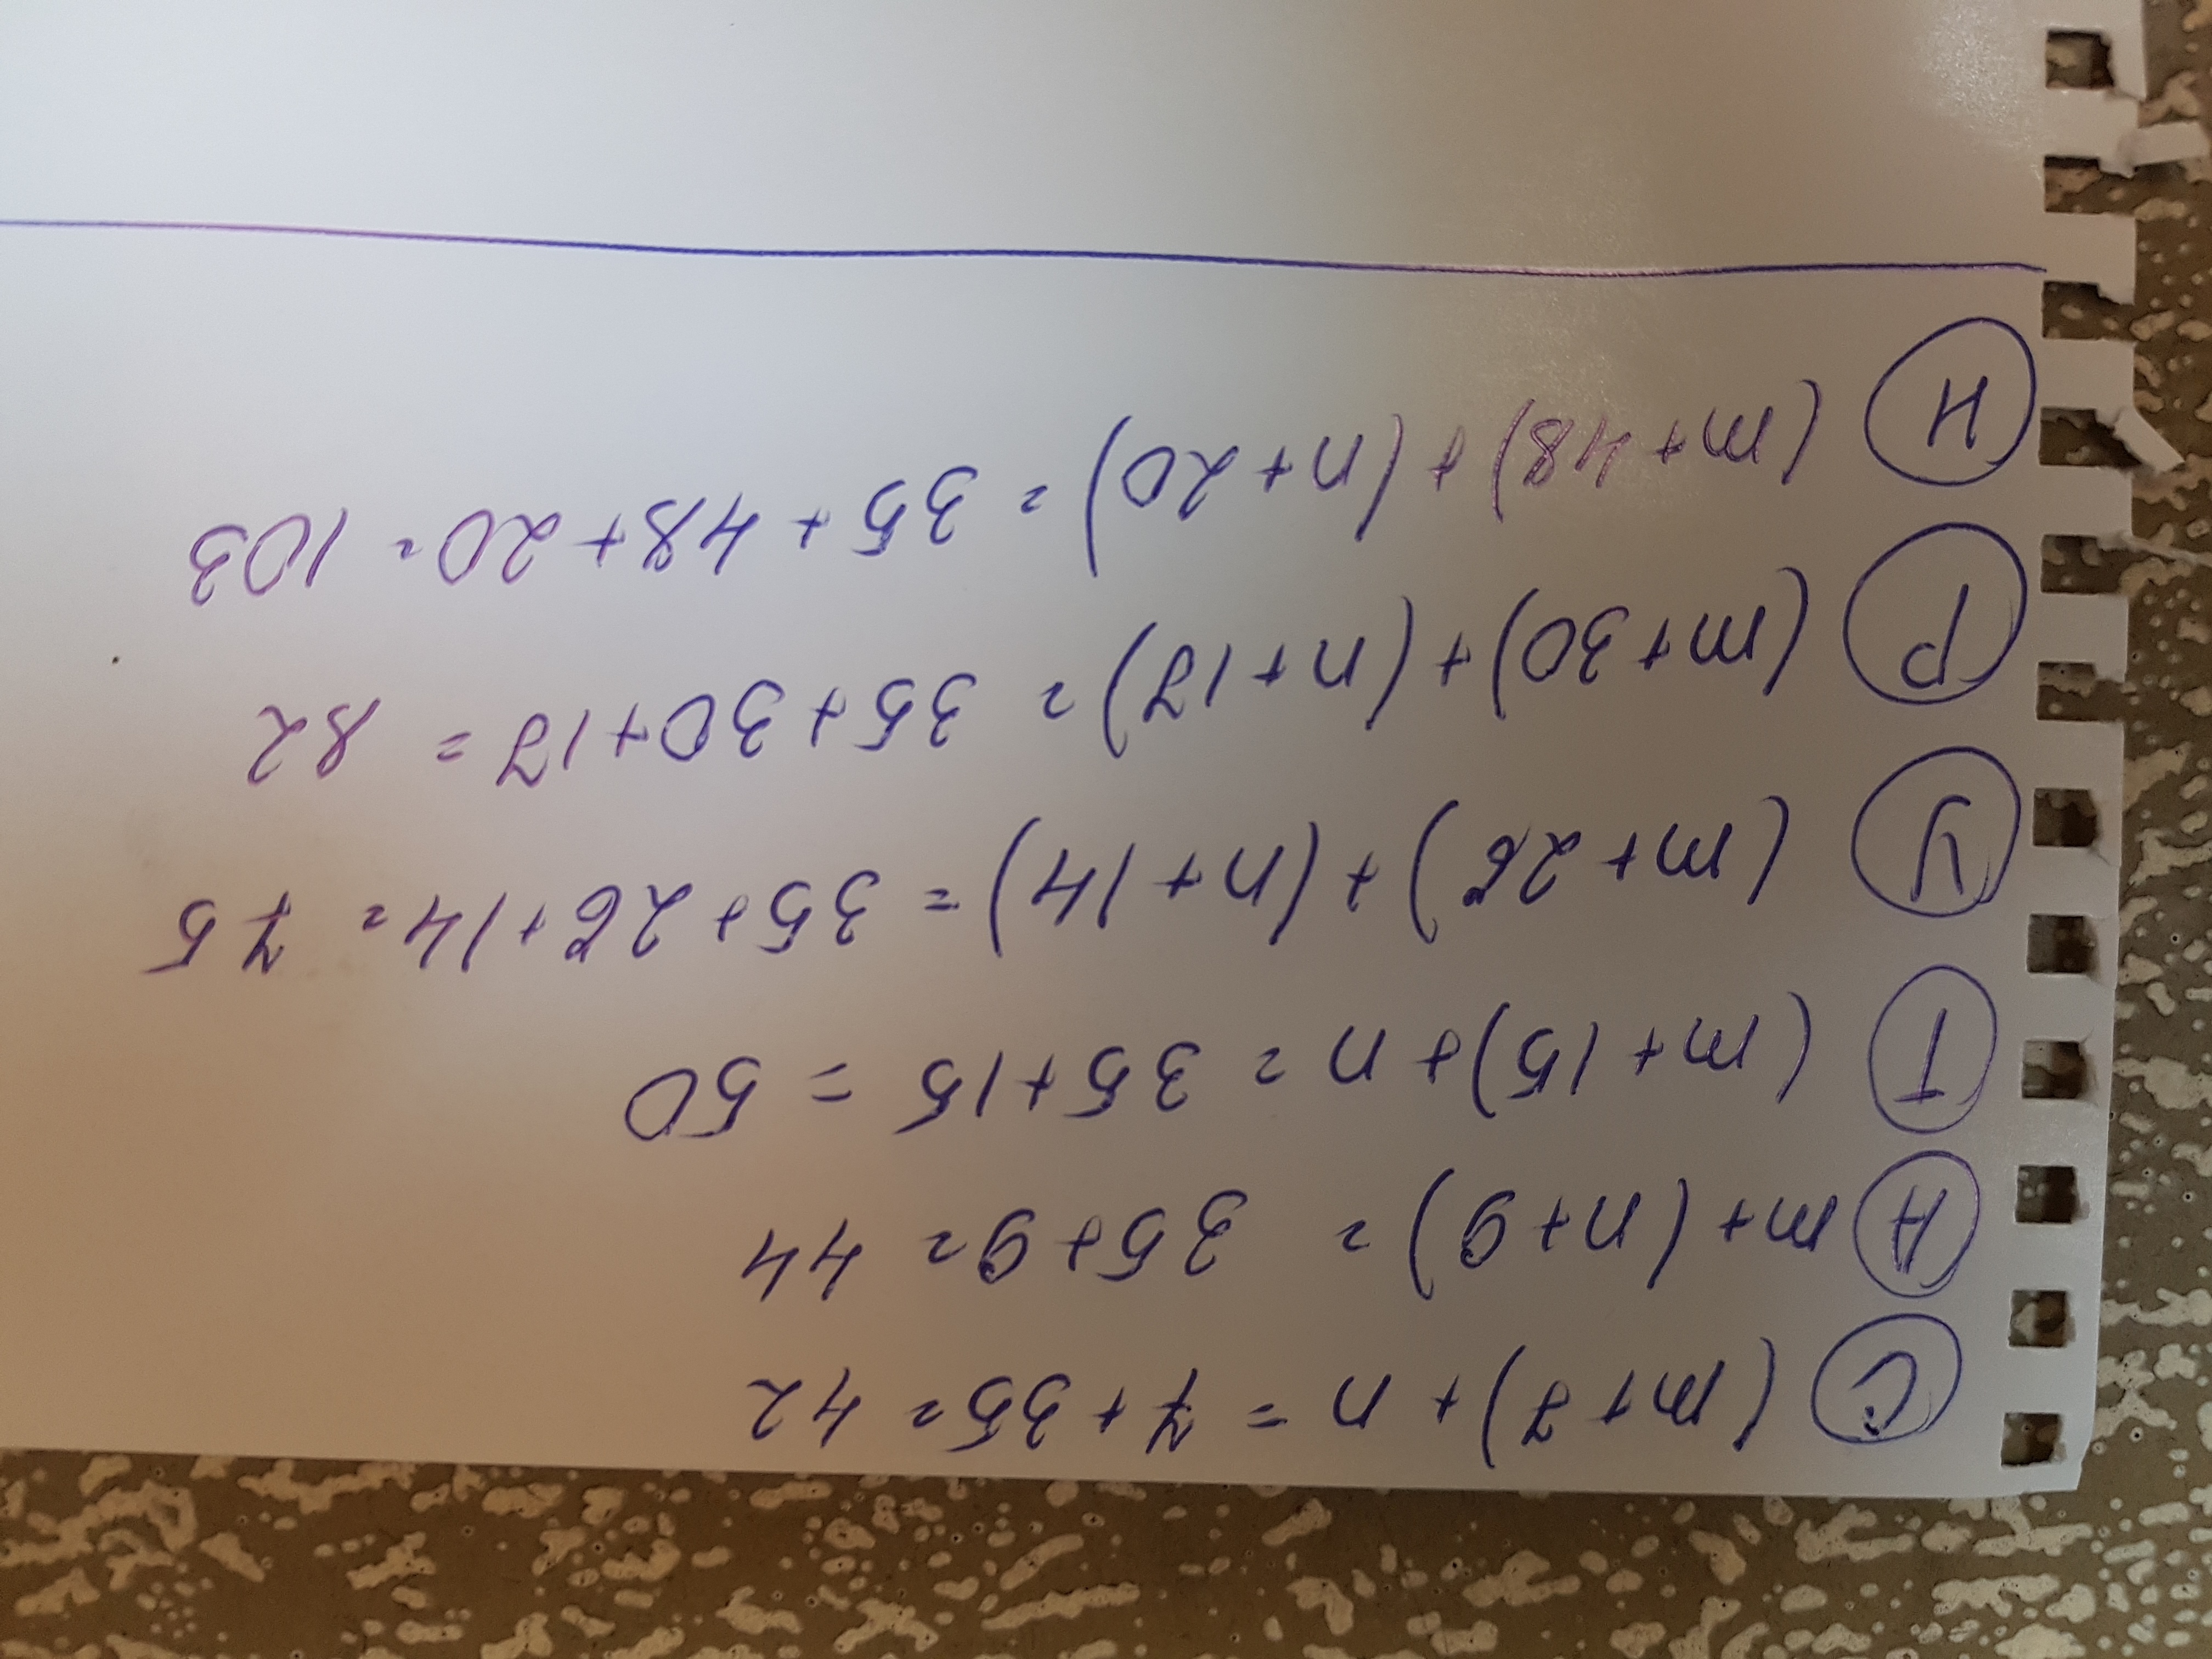 С (m+7)+n=7+35=42
А m+(n+9)=35+9=44
Т (m+15)+n=35+15=50
У (m+26)+(n+14)=35+26+14=75
Р (m+30)+(n+17)=35+30+17=82
Н (m+48)+(n+20)=35+48+20=103